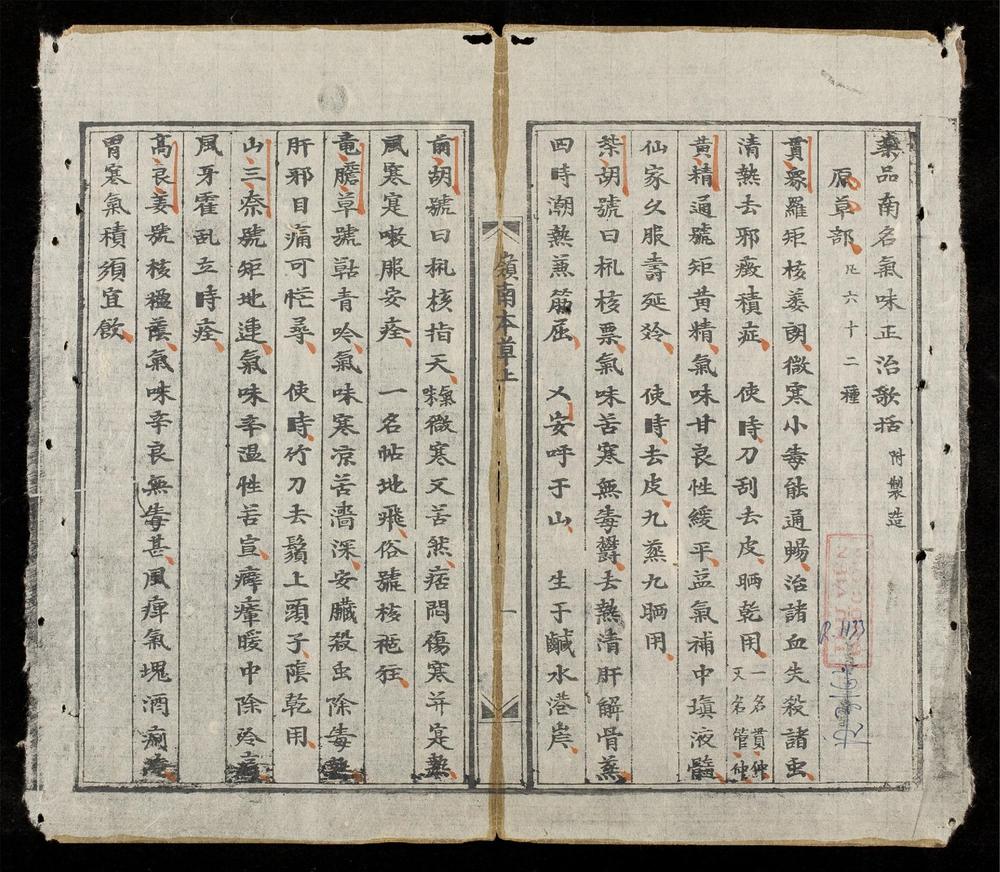 藥品南名氣味正治歌括 附製造
原草部 凡六十二種
貫衆羅矩核蒌朗微寒小毒能通暢治諸血失殺諸虫
清熱去邪癥積症 使時刀刮去皮晒乾用 一名貫仲 又名管仲
黄精通號矩黄精氣味甘良性緩平益氣補中瑱液髓
仙家久服壽延齡 使時去皮九蒸九晒用
柴胡號曰核票氣味苦寒無毒欝去熱清肝解骨蒸
四時潮熱蒹筋屈 又安呼于山 生于鹹水港岸
嶺南本草上
一
前胡號曰核指天微寒又苦然痞悶傷寒并寔熱
風寒寔嗽服安痊 一名帖地飛俗號核袘狂
竜膽草號青吟氣味寒凉苦濇深安臟殺虫除毒
肝邪目痛可恾尋 使時竹刀去鬚上頭子蔭乾用
山三柰號矩地連氣味辛温性苦宣癉瘴暖中除冷
風牙霍乱立時痊
高良姜號核蘊蔭氣味辛良無毒甚風痺氣塊酒痢
胃寒氣積須宜飲
R.1133